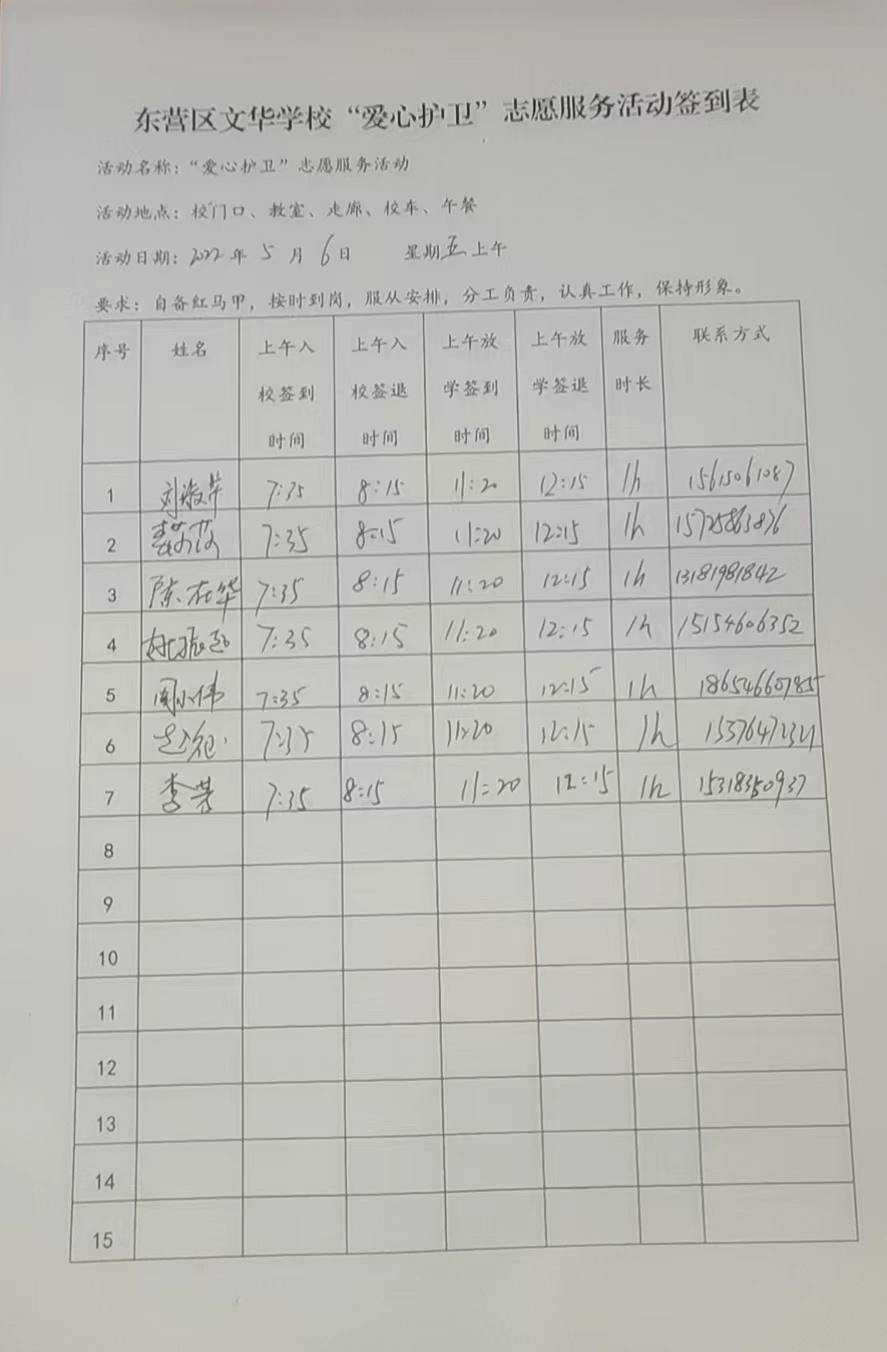 东营区文华学校“爱心护卫”志愿服务活动签到表
活动名称：“爱心护卫”志愿服务活动
活动地点：校门口、教室、走廊、校车、午餐
活动日期：2022年 5 月 6日 星期五上午
要求：自备红马甲，按时到岗，服从安排，分工负责，认真工作，保持形象。
序号 姓名 上午入校签到时间 上午入校签退时间 上午放学签到时间 上午放学签退时间 服务时长 联系方式
1 刘淑萍 7:35 8:15 11:20 12:15 1h 15615061087
2 7:35 8:15 11:20 12:15 1h 15725863876
3 陈在华 7:35 8:15 11:20 12:15 1h 13181981842
4 7:35 8:15 11:20 12:15 1h 15154606352
5 周小伟 7:35 8:15 11:20 12:15 1h 18654660785
6 7:35 8:15 11:20 12:15 1h
7 李芳 7:35 8:15 11:20 12:15 1h 15318350937
8
9
10
11
12
13
14
15